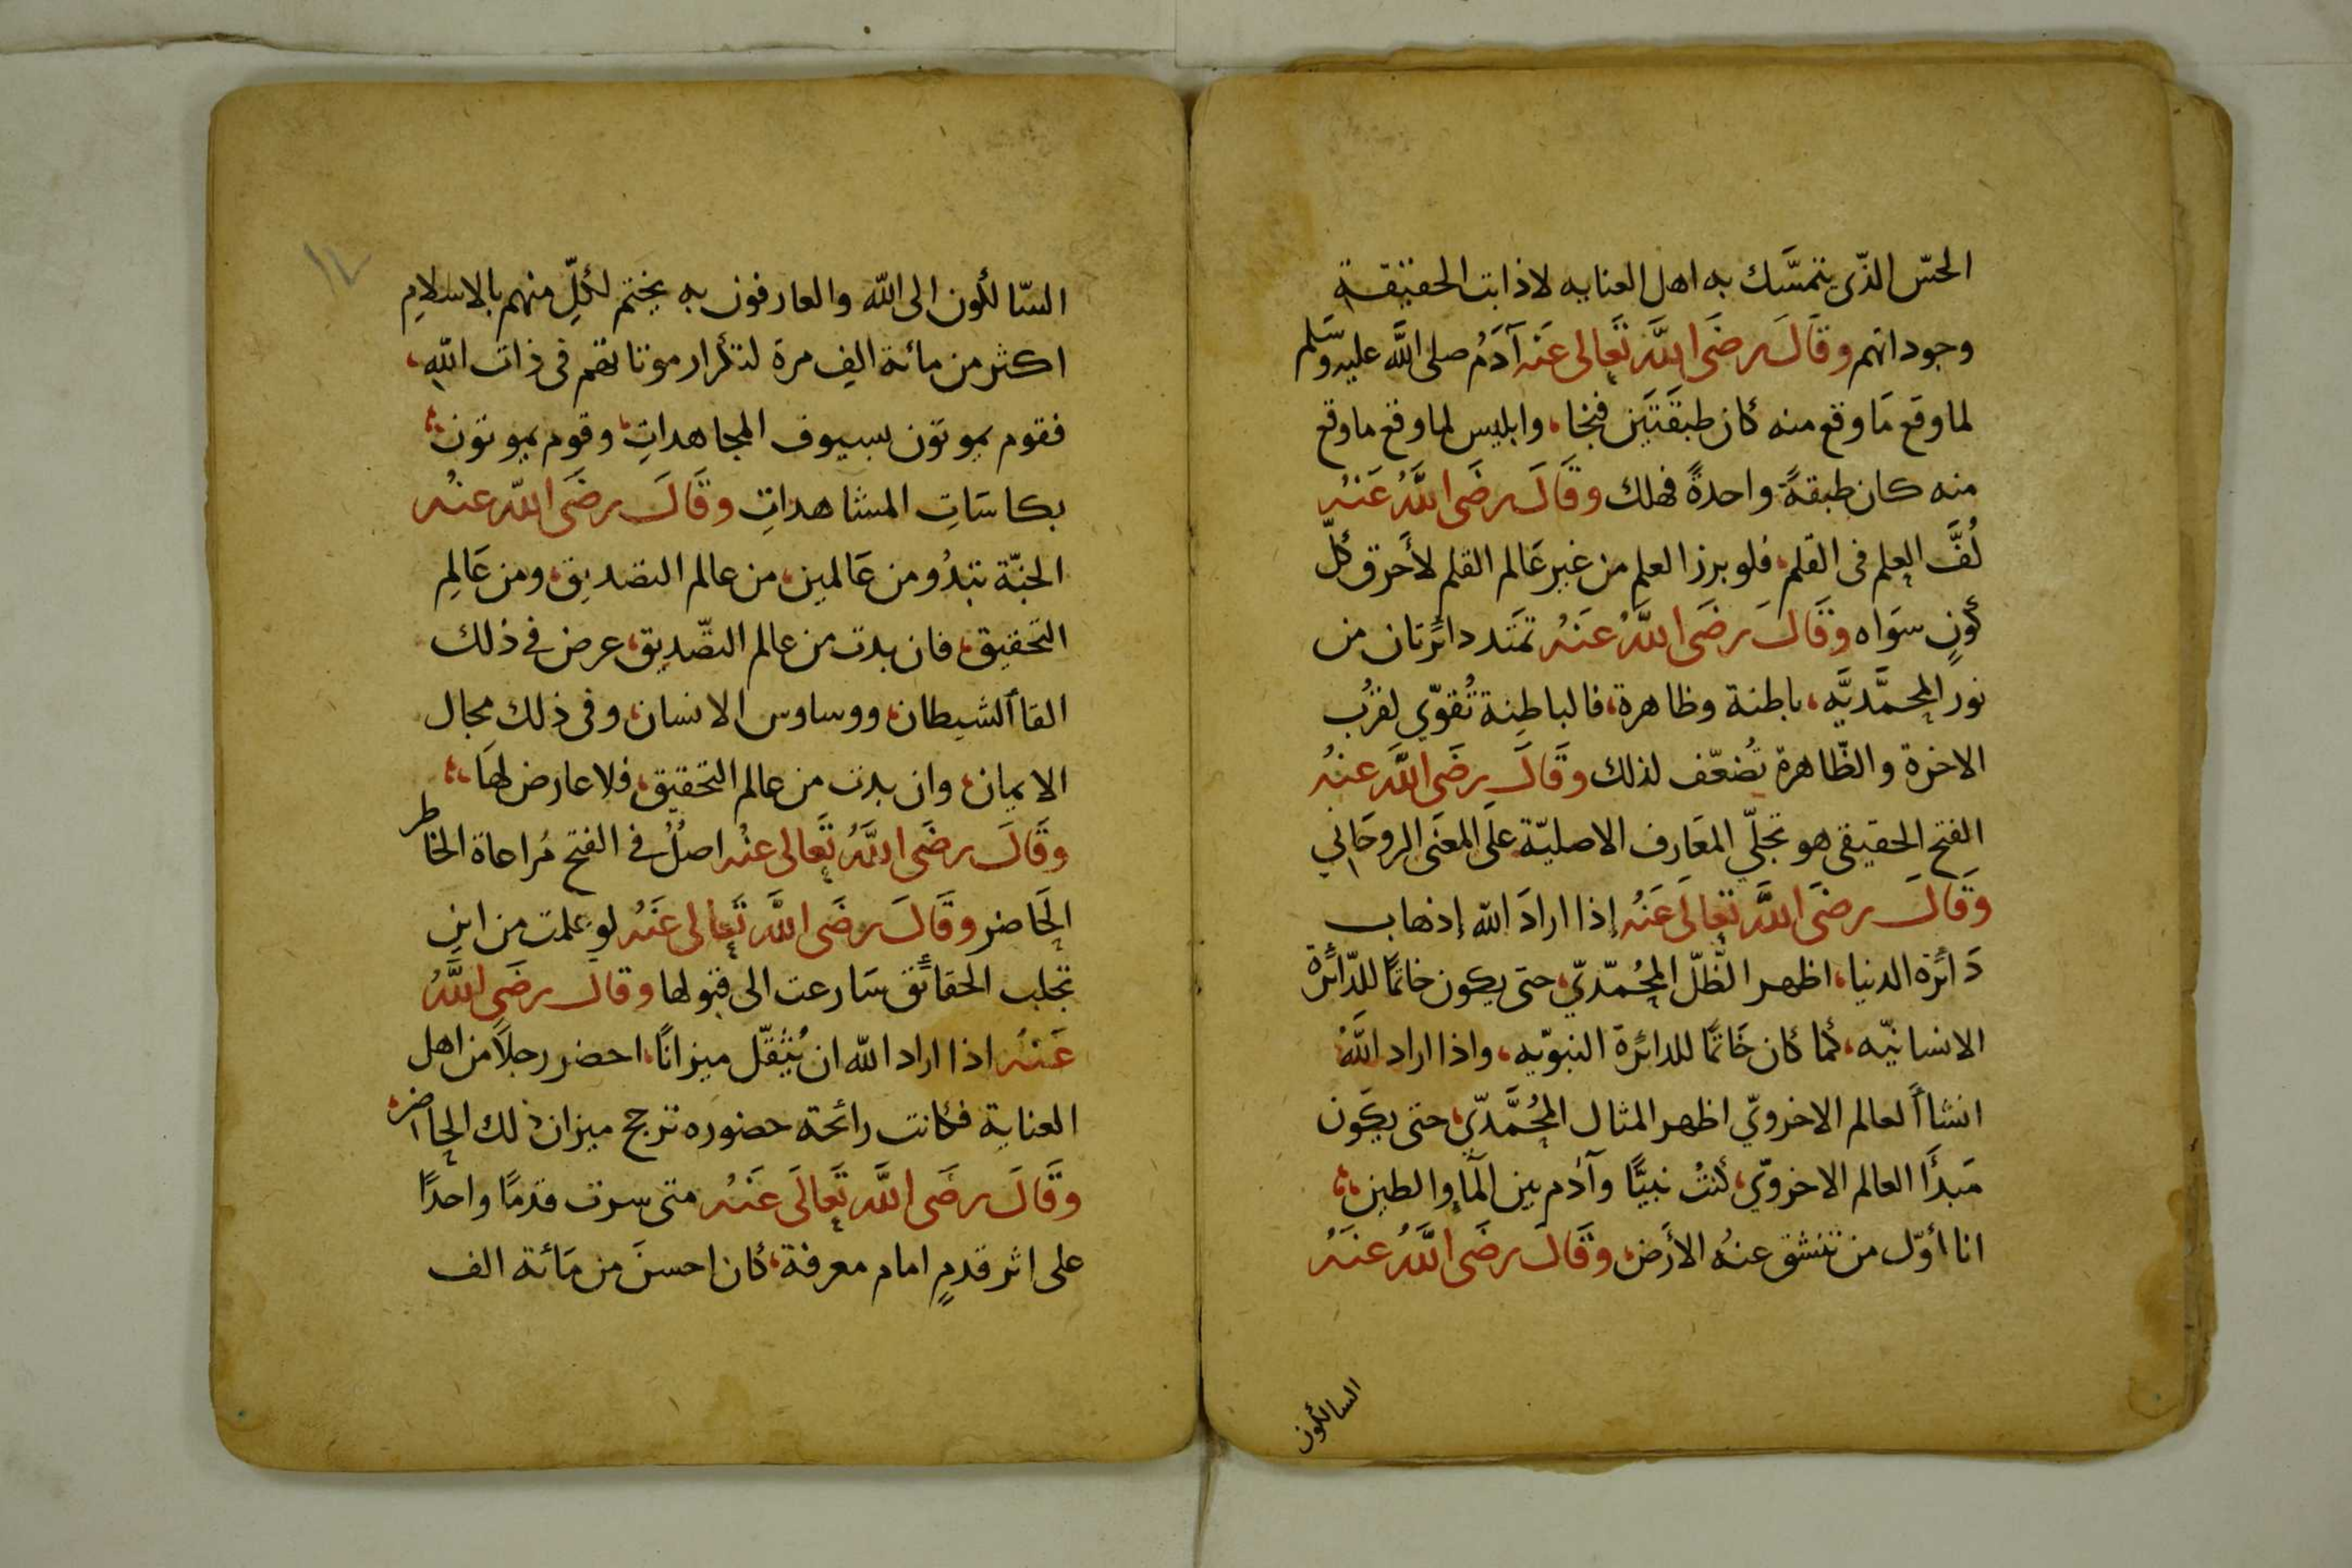 الحسّ الذّى يتمسَّك به اهل العنايه لاذابت الحقيقة
وجوداتهم وقَالَ رضَى اللَّه تَعالى عَنْه آدَمُ صلى اللَّه عليه وسَّلم
لما وقع مَا وقع منه كان طبقَتَين فنجا، وابليس لما وقع ما وقع
منه كان طبقةً واحدةً فهلك وقَالَ رضَى اللَّهُ عَنْهُ
لُفَّ العِلم فى القلم، فلو برز العلم من غير عَالم القلم لأَحرق كلّ
كَونٍ سوَاه وَقَالَ رضَى اللَّهُ عَنْهُ تمتَد دائرَتان من
نور المحمَّديَّه، باطنة وظاهرة، فالباطِنة تُقوّي لقرُب
الاخرة والظّاهرة تُضعّف لذلك وقَالَ رضَى اللَّه عنْهُ
الفتح الحقيقى هو تجلّي المعَارف الاصليّة علَى المعنَى الروحَاني
وَقَالَ رضَى اللَّه تعالَى عَنْهُ إذا ارادَ الله إذهاب
دَائرَة الدنيا، اظهر الظّلّ المحُمّديّ، حتى يكون خاتمًا للدّائرَة
الانسانيّه، كما كان خَاتمًا للدائرَة النبوّيه، واذا اراد اللَّهُ
انشاأ لعالم الاخرويّ اظهر المثال المحُمَّديّ، حتى يكَون
مَبدَأ العالم الاخرويّ، كنتُ نبيًّا وآدم بين المآء والطين،
انا أوّل من تنشق عنهُ الأرَض، وقَالَ رضَى اللَّهُ عنَهُ
السالكون
١٧
السّالكون الى اللّه والعارفون به يختم لكلِّ منهم بالاسلامِ
اكثر من مائة الفِ مرة لتكرار موتاتهم فى ذات اللّهِ،
فقوم يموتون بسيوف المجاهداتِ، وقوم يموتون
بكاسَاتِ المشاهداتِ وقَالَ رضَى اللّه عنْه
الجنّة تبدُو من عَالمين، من عالم التصديق، ومن عَالمِ
التحقيق، فان بدت من عالم التصّديق، عرض فى ذلك
القاأ الشيطان، ووساوس الانسان، وفى ذلك مجال
الايمان، وان بدت من عالم التحقيق، فلا عارض لهَا،
وقَالَ رضَى اللَّهُ تَعالى عنْه اصلٌ فى الفتح مُراعاة الخاطر
الحَاضر وقَالَ رضَى اللَّه تَعالى عَنْهُ لو علمت من اين
تجلب الحقائَق سَارعت الى قبولها وقال رضَى اللَّهُ
عَنْهُ اذا اراد اللّه ان يُثقّل ميزانًا، احضر رجلاً من اهل
العناية فكانت رائحة حضوره ترجح ميزان ذلك الحاضر،
وقَالَ رضَى اللَّه تَعالَى عَنْهُ متى سرت قدمًا واحدًا
على اثر قدمٍ امام معرفة، كان احسنَ من مَائة الف